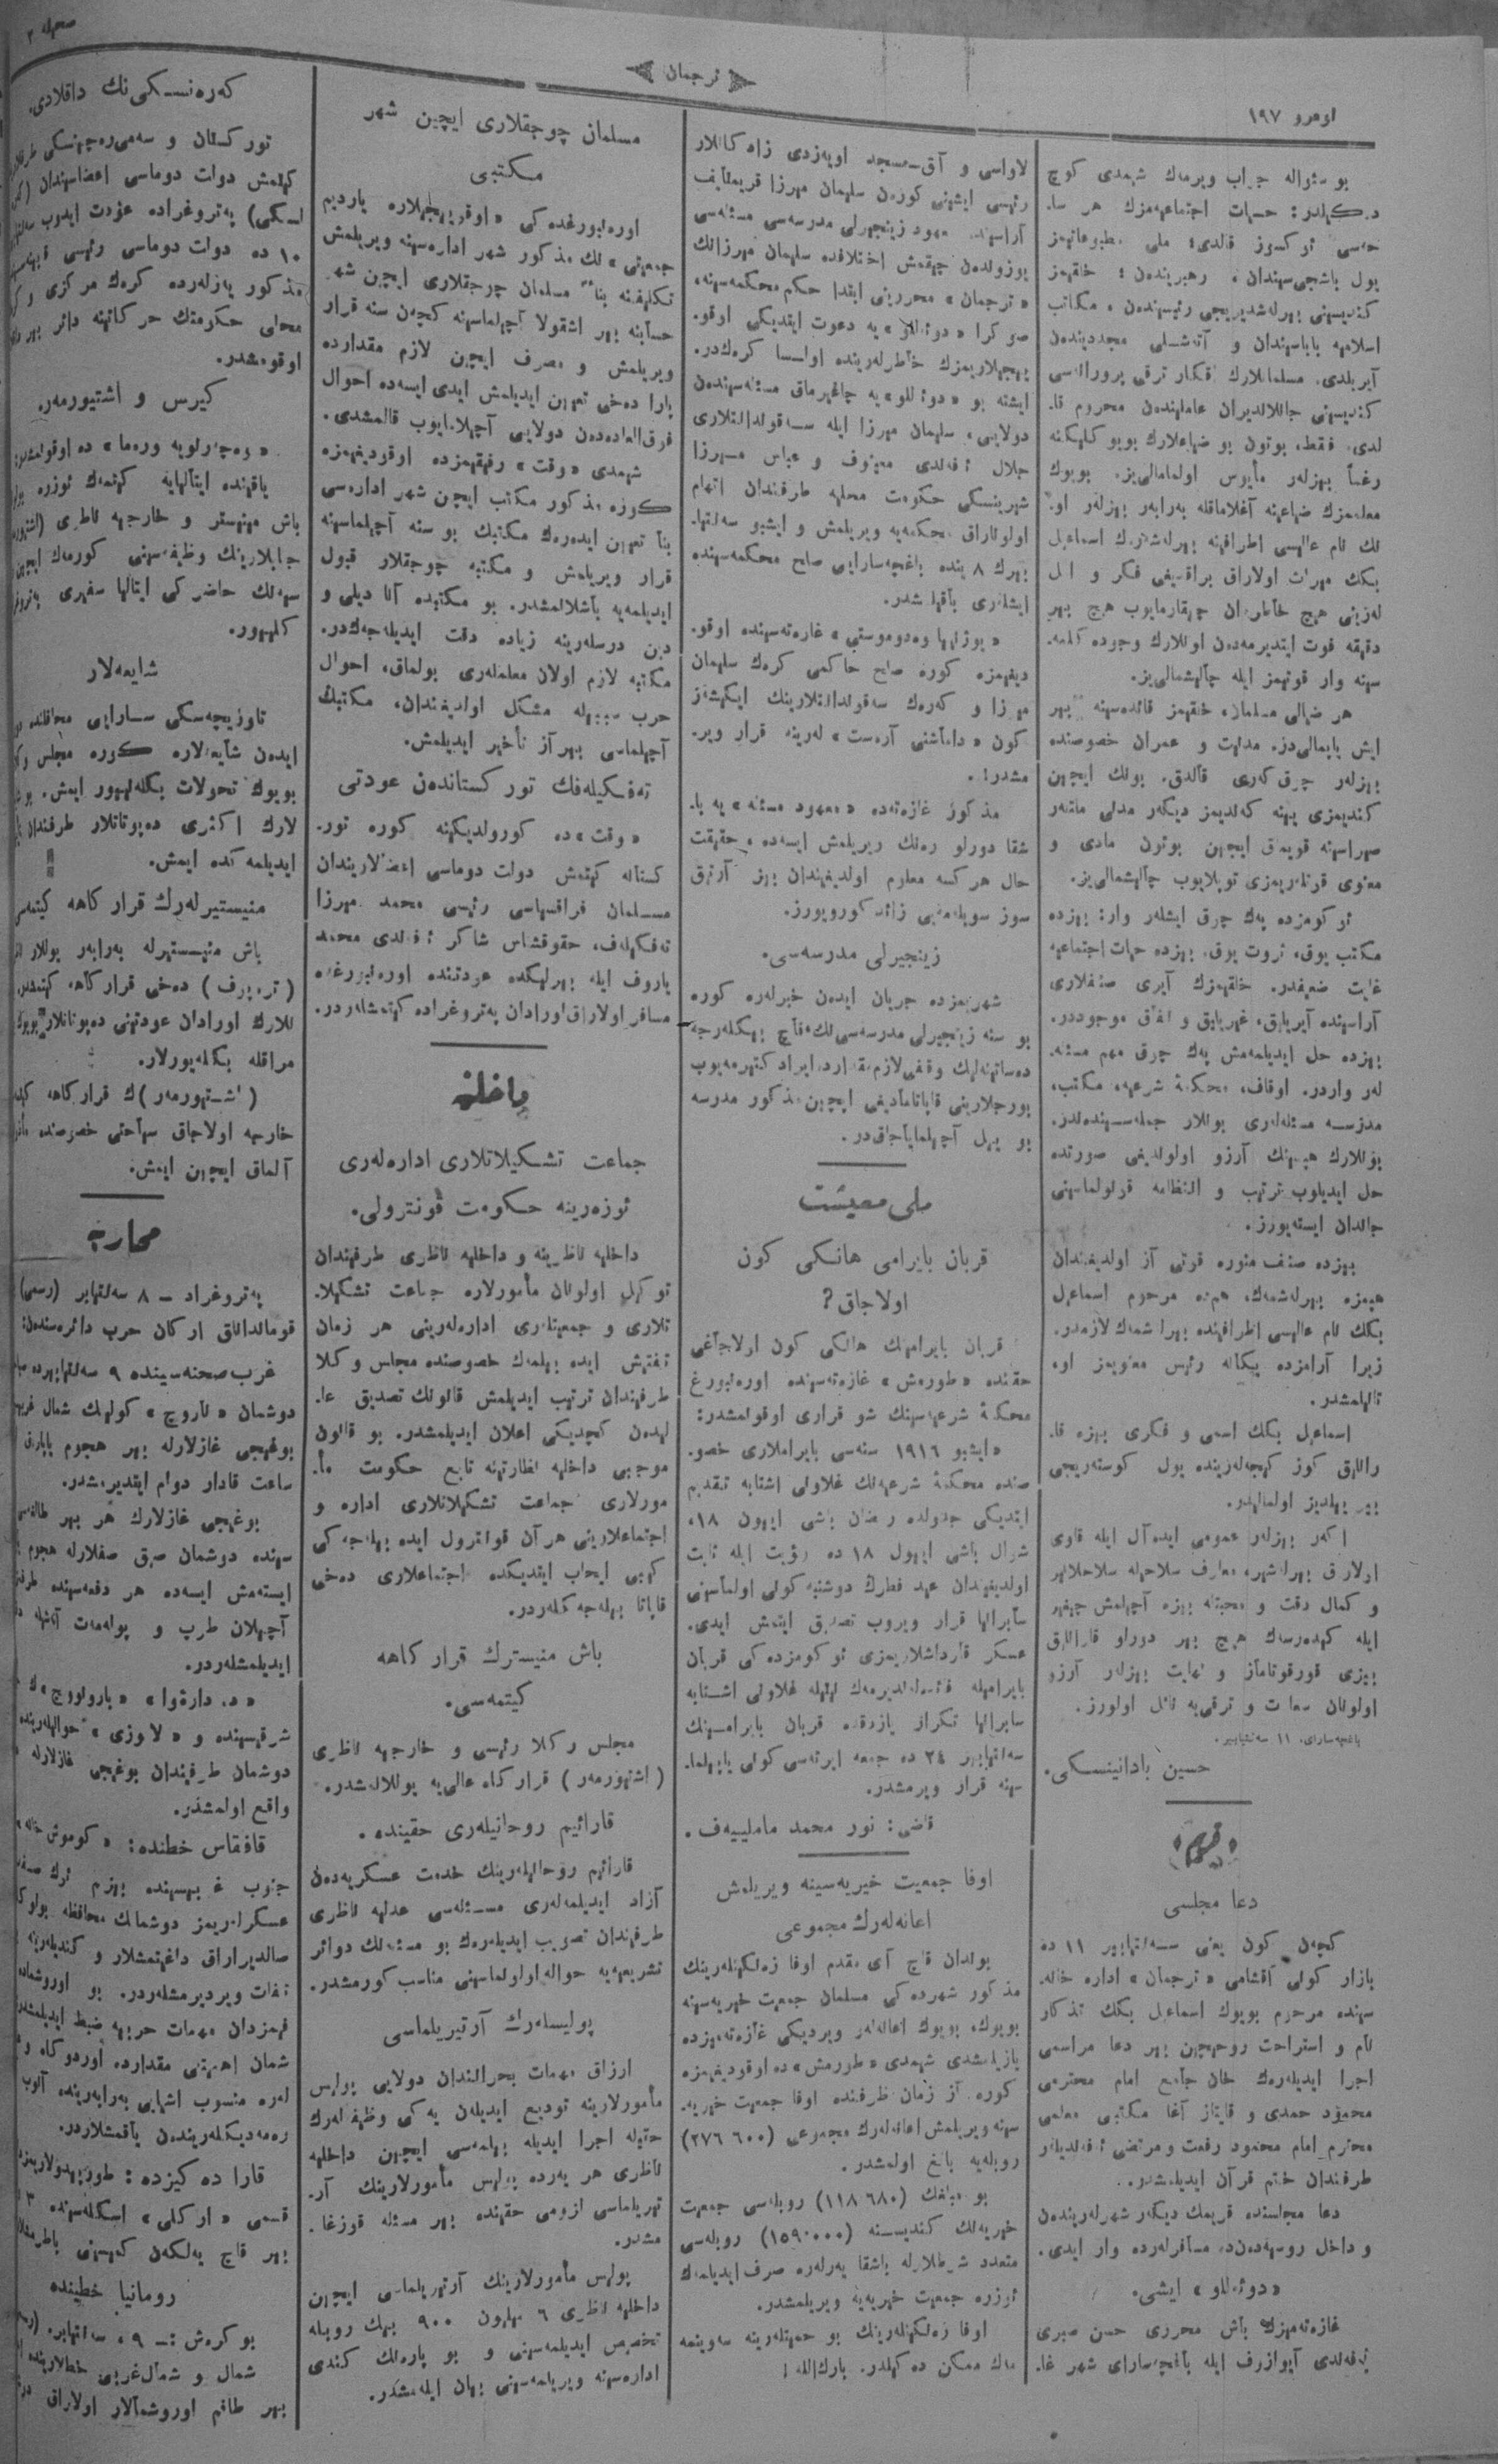 صحیفه ۲
ترجمان
نومرو ۱۹۷
بو سئواله جواب ویرمك شیمدی كوچ
دگلدر: حیات اجتماعیه‌مزك هر سا-
حه‌سی ئوكسوز قالدی؛ ملی مطبوعاتیمز
یول باشجی‌سیندان، رهبریندن؛ خلقیمز
كندیسینی بیرله‌شدیریجی رئیسیندن، مكاتب
اسلامیه باباسیندان و آته‌شلی مجددیندن
آیریلدی. مسلمانلارك افكار ترقی‌پرورانه‌سی
كندیسینی جانلاندیران عاملیندن محروم قا-
لدی. فقط، بوتون بو ضیاعلارك بویوكلیكنه
رغماً بیزله‌ر مأیوس اولمامالی‌یز. بویوك
معلمیمزك ضیاعینه آغلاماقله به‌رابه‌ر بیزله‌ر او-
نك نام عالیسی اطرافینه بیرله‌شه‌رك اسماعیل
بكك میراث اولاراق براقدیغی فكر و امل
له‌رینی هیچ خاطردان چیقارمایوب هیچ بیر
دقیقه فوت ایتدیرمه‌دن اونلارك وجوده كلمه-
سینه وار قوتیمز ایله چالیشمالی‌یز.
هر ضیالی مسلمان، خلقیمز فائده‌سینه بیر
ایش یاپمالی‌در. مدنیت و عمران خصوصنده
بیزله‌ر چوق گه‌ری قالدق. بونك ایچین
كندیمزی یینه كه‌ندیمز دیگه‌ر مدنی ملته‌ر
صیراسینه قویمق ایچین بوتون مادی و
معنوی قوتله‌ریمزی توپلایوب چالیشمالی‌یز.
ئوكومزده پك چوق ایشله‌ر وار: بیزده
مكتب یوق، ثروت یوق، بیزده حیات اجتماعیه
غایت ضعیفدر. خلقیمزك آیری صنفلاری
آراسینده آیریلیق، غیریلیق و نفاق موجوددر.
بیزده حل ایدیلمه‌مش پك چوق مهم مسئله-
له‌ر واردر. اوقاف، محكمهٔ شرعیه، مكتب،
مدرسه مسئله‌له‌ری بونلار جمله‌سینده‌ندر.
بونلارك هپسینك آرزو اولوندیغی صورتده
حل ایدیلوب ترتیب و انتظامه قونولماسینی
جاندان ایسته‌یورز.
بیزده صنف منوره قوتی آز اولدیغندان
هپمزه بیرله‌شمك، همده مرحوم اسماعیل
بكك نام عالیسی اطرافینده بیرله‌شمك لازمدر.
زیرا آرامزده یگانه رئیس معنویمز او،
تانیلمشدر.
اسماعیل بكك اسمی و فكری بیزه قا-
راڭلق كوز كیجه‌له‌رینده یول كوسته‌ریجی
بیر ییلدیز اولمالیدر.
اگر بیزله‌ر عمومی ایده‌آل ایله قاوی
اولارق بیرله‌شیر، معارف سلاحیله سلاحلانیر
و كمال دقت و محبتله بیزه آچیلمش چیغیر
ایله كیده‌رسه‌ك هیچ بیر دورلو قاراڭلق
بیزی قورقوتاماز و نهایت بیزله‌ر آرزو
اولونان سعادت و ترقی‌یه نائل اولورز.
باغچه‌سرای، ۱۱ سه‌نتیابیر.
حسین بادانینسكی.
قریم
دعا مجلسی
كچه‌ن كون یعنی سه‌نتیابیر ۱۱ ده
بازار كونی آقشامی «ترجمان» اداره خانه-
سینده مرحوم بویوك اسماعیل بكك تذكار
نام و استراحت روحیچین بیر دعا مراسمی
اجرا ایدیله‌رك خان جامع امام محترمی
محمود حمدی و قایتاز آغا مكتبی معلمی
محترم امام محمود رفعت و مرتضی ئفه‌ندیله‌ر
طرفندان ختم قرآن ایدیلمشدر.
دعا مجلسنده قریمك دیگه‌ر شهرله‌ریندن
و داخل روسیه‌دن‌ده مسافرله‌رده وار ایدی.
«دوئه‌للو» ایشی.
غازه‌ته‌میزك باش محرری حسن صبری
ئفه‌ندی آیوازوف ایله باغچه‌سارای شهر غا-
لاواسی و آق-مسجد اویه‌زدی زادكانلار
رئیسی ایشینی كوره‌ن سلیمان میرزا قریمتایف
آراسینده معهود زینجیرلی مدرسه‌سی مسئله‌سی
یوزولدن چیقمش اختلافده سلیمان میرزانك
«ترجمان» محررینی ابتدا حكم محكمه‌سینه،
صوكرا «دوئه‌للو» یه دعوت ایتدیكی اوقو-
ییجیلاریمزك خاطرله‌رینده اولسا كره‌كدر.
ایشته بو «دوئه‌للو»یه چاغیرماق مسئله‌سیندن
دولایی، سلیمان میرزا ایله سه‌قوندانتلاری
جلال ئفه‌ندی معینوف و عباس میرزا
شیرینسكی حكومت محلیه طرفندان اتهام
اولوناراق محكمه‌یه ویریلمش و ایشبو سه‌نتیا-
بیرك ۸ ینده باغچه‌سارایی صلح محكمه‌سینده
ایشلری باقیلمشدر.
«یوژنییا وه‌دوموستی» غازه‌ته‌سینده اوقو-
دیغیمزه كوره صلح حاكمی كرك سلیمان
میرزا و كه‌رك سه‌قوندانتلارینك ایكیشه‌ر
كون «داماشنی آره‌ست»له‌رینه قرار ویر-
مشدر!.
مذكور غازه‌ته‌ده «معهود مسئله» یه با-
شقا دورلو ره‌نك ویریلمش ایسه‌ده، حقیقت
حال هركسه معلوم اولدیغیندان بیز آرتیق
سوز سویله‌مه‌یی زائد كورویورز.
زینجیرلی مدرسه‌سی.
شهریمزده جریان ایده‌ن خبرله‌ره كوره
بو سنه زینجیرلی مدرسه‌سی‌نك، قاچ بیڭله‌رجه
ده‌ساتینه‌لیك وقفی لازم مقدارده ایراد كتیرمه‌یوب
بورجلارینی قاپاتامادیغی ایچین مذكور مدرسه
بو ییل آچیلمایاجاق‌در.
ملی معیشت
قربان بایرامی هانكی كون
اولاجاق؟
قربان بایرامینك هانكی كون اولاجاغی
حقنده «طورمش» غازه‌ته‌سینده اوره‌نبورغ
محكمهٔ شرعیه‌سینك شو قراری اوقونمشدر:
«ایشبو ۱۹۱٦ سنه‌سی بایراملاری خصو-
صنده محكمهٔ شرعیه‌نك غلاونی اشتابه تقدیم
ایتدیكی جدولده رمضان باشی اییون ۱۸،
شوال باشی اییول ۱۸ ده رؤیت ایله ثابت
اولدیغیندان عید فطرك دوشنبه كونی اولماسینی
سابرانیا قرار ویروب تصدیق ایتمش ایدی.
عسكر قارداشلاریمزی ئوكومزده‌كی قربان
بایرامیله فائده‌لندیرمه‌ك نیتیله غلاونی اشتابه
سابرانیا تكرار یازدقده قربان بایرامینك
سه‌نتیابیر ۲٤ ده جمعه ایرته‌سی كونی یاپیلما-
سینه قرار ویرمشدر.
قاضی: نور محمد ماملییه‌ف.
اوفا جمعیت خیریه‌سینه ویریلمش
اعانه‌له‌رك مجموعی
بوندان قاچ آی مقدم اوفا زه‌نگینله‌رینك
مذكور شهرده‌كی مسلمان جمعیت خیریه‌سینه
بویوك، بویوك اعانه‌له‌ر ویردیكی غازه‌ته‌میزده
یازیلمشدی شیمدی «طورمش» ده اوقودیغیمزه
كوره. آز زمان ظرفنده اوفا جمعیت خیریه-
سینه ویریلمش اعانه‌له‌رك مجموعی (۲۷٦ ٦۰۰)
روبله‌یه بالغ اولمشدر.
بو مبلغك (۱۱۸ ٦۸۰) روبله‌سی جمعیت
خیریه‌نك كندیسنه (۱٥۹۰۰۰۰) روبله‌سی
متعدد شرطلارله باشقا یه‌رله‌ره صرف ایدیلمك
ئوزره جمعیت خیریه‌یه ویریلمشدر.
اوفا زه‌نگینله‌رینك بو حمیتله‌رینه سه‌وینمه
مك ممكن ده‌گیلدر. بارك‌الله!
مسلمان چوجقلاری ایچین شهر
مكتبی
اوره‌نبورغده‌كی «اوقوییجیلاره یاردیم
جمعیتی»نك مذكور شهر اداره‌سینه ویریلمش
تكلیفنه بناءً مسلمان چوجقلاری ایچین شهر
حسابنه بیر اشقولا آچیلماسینه كچه‌ن سنه قرار
ویریلمش و مصرف ایچین لازم مقدارده
پارا ده‌خی تعیین ایدیلمش ایدی ایسه‌ده احوال
فوق‌العاده‌دن دولایی آچیلامایوب قالمشدی.
شیمدی «وقت» رفیقیمزده اوقودیغیمزه
كوره مذكور مكتب ایچین شهر اداره‌سی
بنا تعیین ایده‌رك مكتبك بو سنه آچیلماسینه
قرار ویریلمش و مكتبه چوجقلار قبول
ایدیلمه‌یه باشلانمشدر. بو مكتبده آنا دیلی و
دین درسله‌رینه زیاده دقت ایدیله‌جه‌كدر.
مكتبه لازم اولان معلمله‌ری بولماق، احوال
حرب سببیله مشكل اولدیغندان، مكتبك
آچیلماسی بیر آز تأخیر ایدیلمش.
ته‌فكیله‌فك توركستاندن عودتی
«وقت»ده كورولدیكینه كوره تور-
كستانه كیتمش دولت دوماسی اعضالاریندان
مسلمان فراقسیاسی رئیسی محمد میرزا
ته‌فكیله‌ف، حقوقشناس شاكر ئفه‌ندی محمد
یاروف ایله بیرلیكده عودتنده اوره‌نبورغده
مسافر اولاراق اورادان په‌تروغراده كیتمشله‌ردر.
داخلیه
جماعت تشكیلاتلاری اداره‌له‌ری
ئوزه‌رینه حكومت قونترولی.
داخلیه ناظرینه و داخلیه ناظری طرفیندان
توكیل اولونان مأمورلاره جماعت تشكیلا-
تلاری و جمعیتله‌ری اداره‌له‌رینی هر زمان
تفتیش ایده بیلمك خصوصنده مجلس وكلا
طرفیندان ترتیب ایدیلمش قانونك تصدیق عا-
لیدن كچدیكی اعلان ایدیلمشدر. بو قانون
موجبی داخلیه نظارتینه تابع حكومت مأ-
مورلاری جماعت تشكیلاتلاری اداره و
اجتماعلارینی هر آن قونترول ایده بیله‌جه‌كی
كیبی ایجاب ایتدیكده اجتماعلاری ده‌خی
قاپاتا بیله‌جه‌كله‌ردر.
باش منیسترك قرار كاهه
كیتمه‌سی.
مجلس وكلا رئیسی و خارجیه ناظری
(اشتیورمه‌ر) قرار كاه عالی‌یه یوللانمشدر.
قارائیم روحانیله‌ری حقینده.
قارائیم روحانیله‌رینك خدمت عسكریه‌دن
آزاد ایدیلمه‌له‌ری مسئله‌سی عدلیه ناظری
طرفیندان تصویب ایدیله‌رك بو مسئله‌نك دوائر
تشریعیه‌یه حواله اولونماسینی مناسب كورمشدر.
پولیسله‌رك آرتیریلماسی
ارزاق مهمات بحرانندان دولایی پولیس
مأمورلارینه تودیع ایدیلن یه‌كی وظیفه‌له‌رك
حقیله اجرا ایدیله بیلمه‌سی ایچین داخلیه
ناظری هر یه‌رده پولیس مأمورلارینك آر-
تیریلماسی لزومی حقینده بیر مسئله قوزغا-
مشدر.
پولیس مأمورلارینك آرتیریلماسی ایچین
داخلیه ناظری ٦ میلیون ۹۰۰ بیڭ روبله
تخصیص ایدیلمه‌سینی و بو پاره‌نك كندی
اداره‌سینه ویریلمه‌سینی بیان ایله‌مشدر.
كه‌ره‌نسكی‌نك داقلادی.
توركستان و سه‌میره‌چینسكی
كیلمش دولت دوماسی اعضاسیندان
نسكی) په‌تروغراده عودت ایدوب
۱۰ ده دولت دوماسی رئیسی
مذكور یه‌رله‌رده كرك مركزی و
محلی حكومتك حركاتینه دائر بیر
اوقومشدر.
كیرس و اشتیورمه‌ر.
«وه‌چه‌رنویه وره‌ما» ده اوقونمشدر:
یاقینده ایتالیایه كیتمك ئوزره
باش مینیستر و خارجیه ناظری
جنابلارینك وظیفه‌سینی كورمك ایچین
سیه‌نك حاضركی ایتالیا سفیری
كلییور.
شایعه‌لار
تاوریچه‌سكی سارایی محافلنده
ایده‌ن شایعه‌لاره كوره مجلس
بویوك تحولات بكله‌نییور ایمش.
لارك اكثری ده‌پوتاتلار طرفندان
ایدیلمه‌كده ایمش.
منیستیرله‌رك قرار كاهه كیتمه‌سی
باش منیستیرله به‌رابه‌ر یوللار
(تره‌پوف) ده‌خی قرار كاهه كیتمشدر.
نلارك اورادان عودتینی ده‌پوتاتلار بویوك
مراقله بكله‌یورلار.
(اشتیورمه‌ر)ك قرار كاهه
خارجه اولاجاق سیاحتی خصوصنده
آلماق ایچین ایمش.
محاربه
په‌تروغراد – ۸ سه‌نتیابیر (رسمی)
قوماندانلق اركان حرب دائره‌سندن:
غرب صحنه‌سینده ۹ سه‌نتیابیرده
دوشمان «ناروچ» كولینك شمال
بوغیجی غازلارله بیر هجوم یاپارق
ساعت قادار دوام ایتدیرمشدر.
بوغیجی غازلارك هر بیر
سینده دوشمان صیق صفلارله هجوم
ایسته‌مش ایسه‌ده هر دفعه‌سینده
آچیلان طوپ و پوله‌موت آته‌شیله
ایدیلمشله‌ردر.
شرقیسینده و «لاوزی» حوالیله‌رینده
دوشمان طرفیندان بوغیجی غازلارله
واقع اولمشدر.
قافقاس خطنده:
جنوب غربیسینده بیزم
عسكرله‌ریمز دوشمانك محافظه
صالدیراراق داغیتمشلار و كندیله‌رینه
تلفات ویردیرمشله‌ردر. بو
مهمات حربیه ضبط ایدیلمشدر
شمان اهمیتلی مقدارده اوردوكاه
له‌ره منسوب اشیایی به‌رابه‌رینده آلوب
یاقمشلاردر.
قارا ده‌كیزده:
قسمی «اركلی» اسكله‌سینده
بیر قاچ یه‌لكه‌ن كیمینی
رومانیا خطینده
شمال و شمال غربی
بیر طاقم اوروشمالار اولاراق